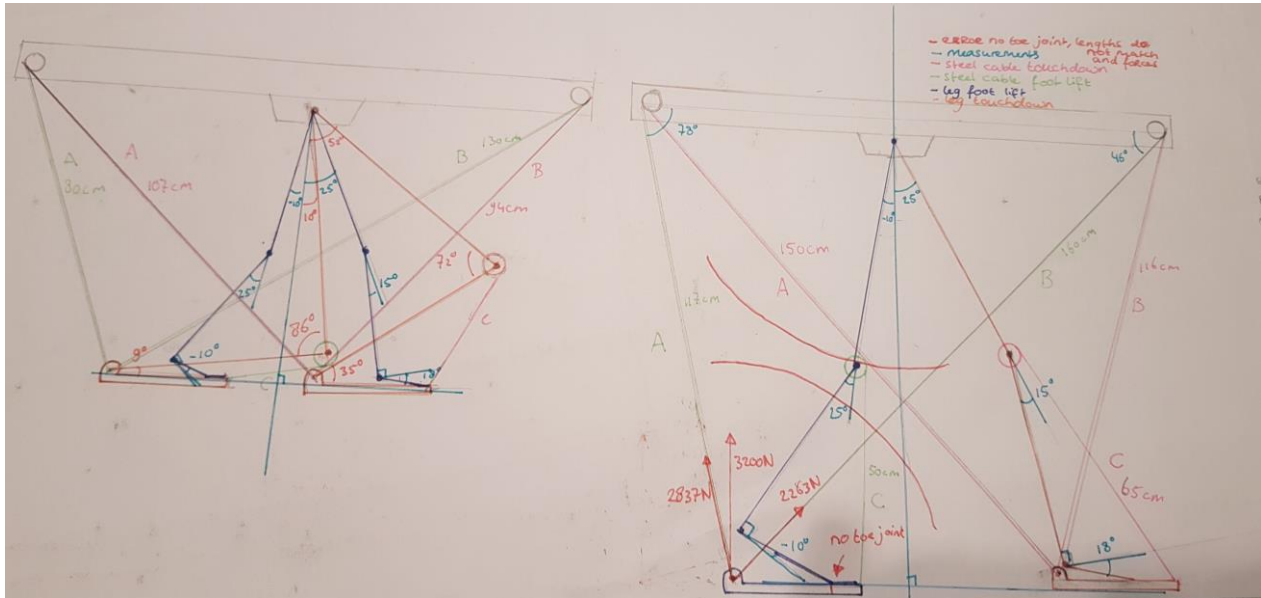 - ERROR no toe joint, lengths do not match and forces
- measurements
- steel cable touchdown
- steel cable foot lift
- leg foot lift
- leg touchdown
A
30cm
A
107cm
B
130cm
B
94cm
55°
-10°
25°
10°
25°
15°
72°
C
86°
9°
-10°
35°
18°
C
78°
46°
-10°
25°
150cm
A
160cm
B
116cm
B
117cm
A
25°
15°
50cm
C
C
65cm
3200N
2837N
2263N
-10°
no toe joint
18°